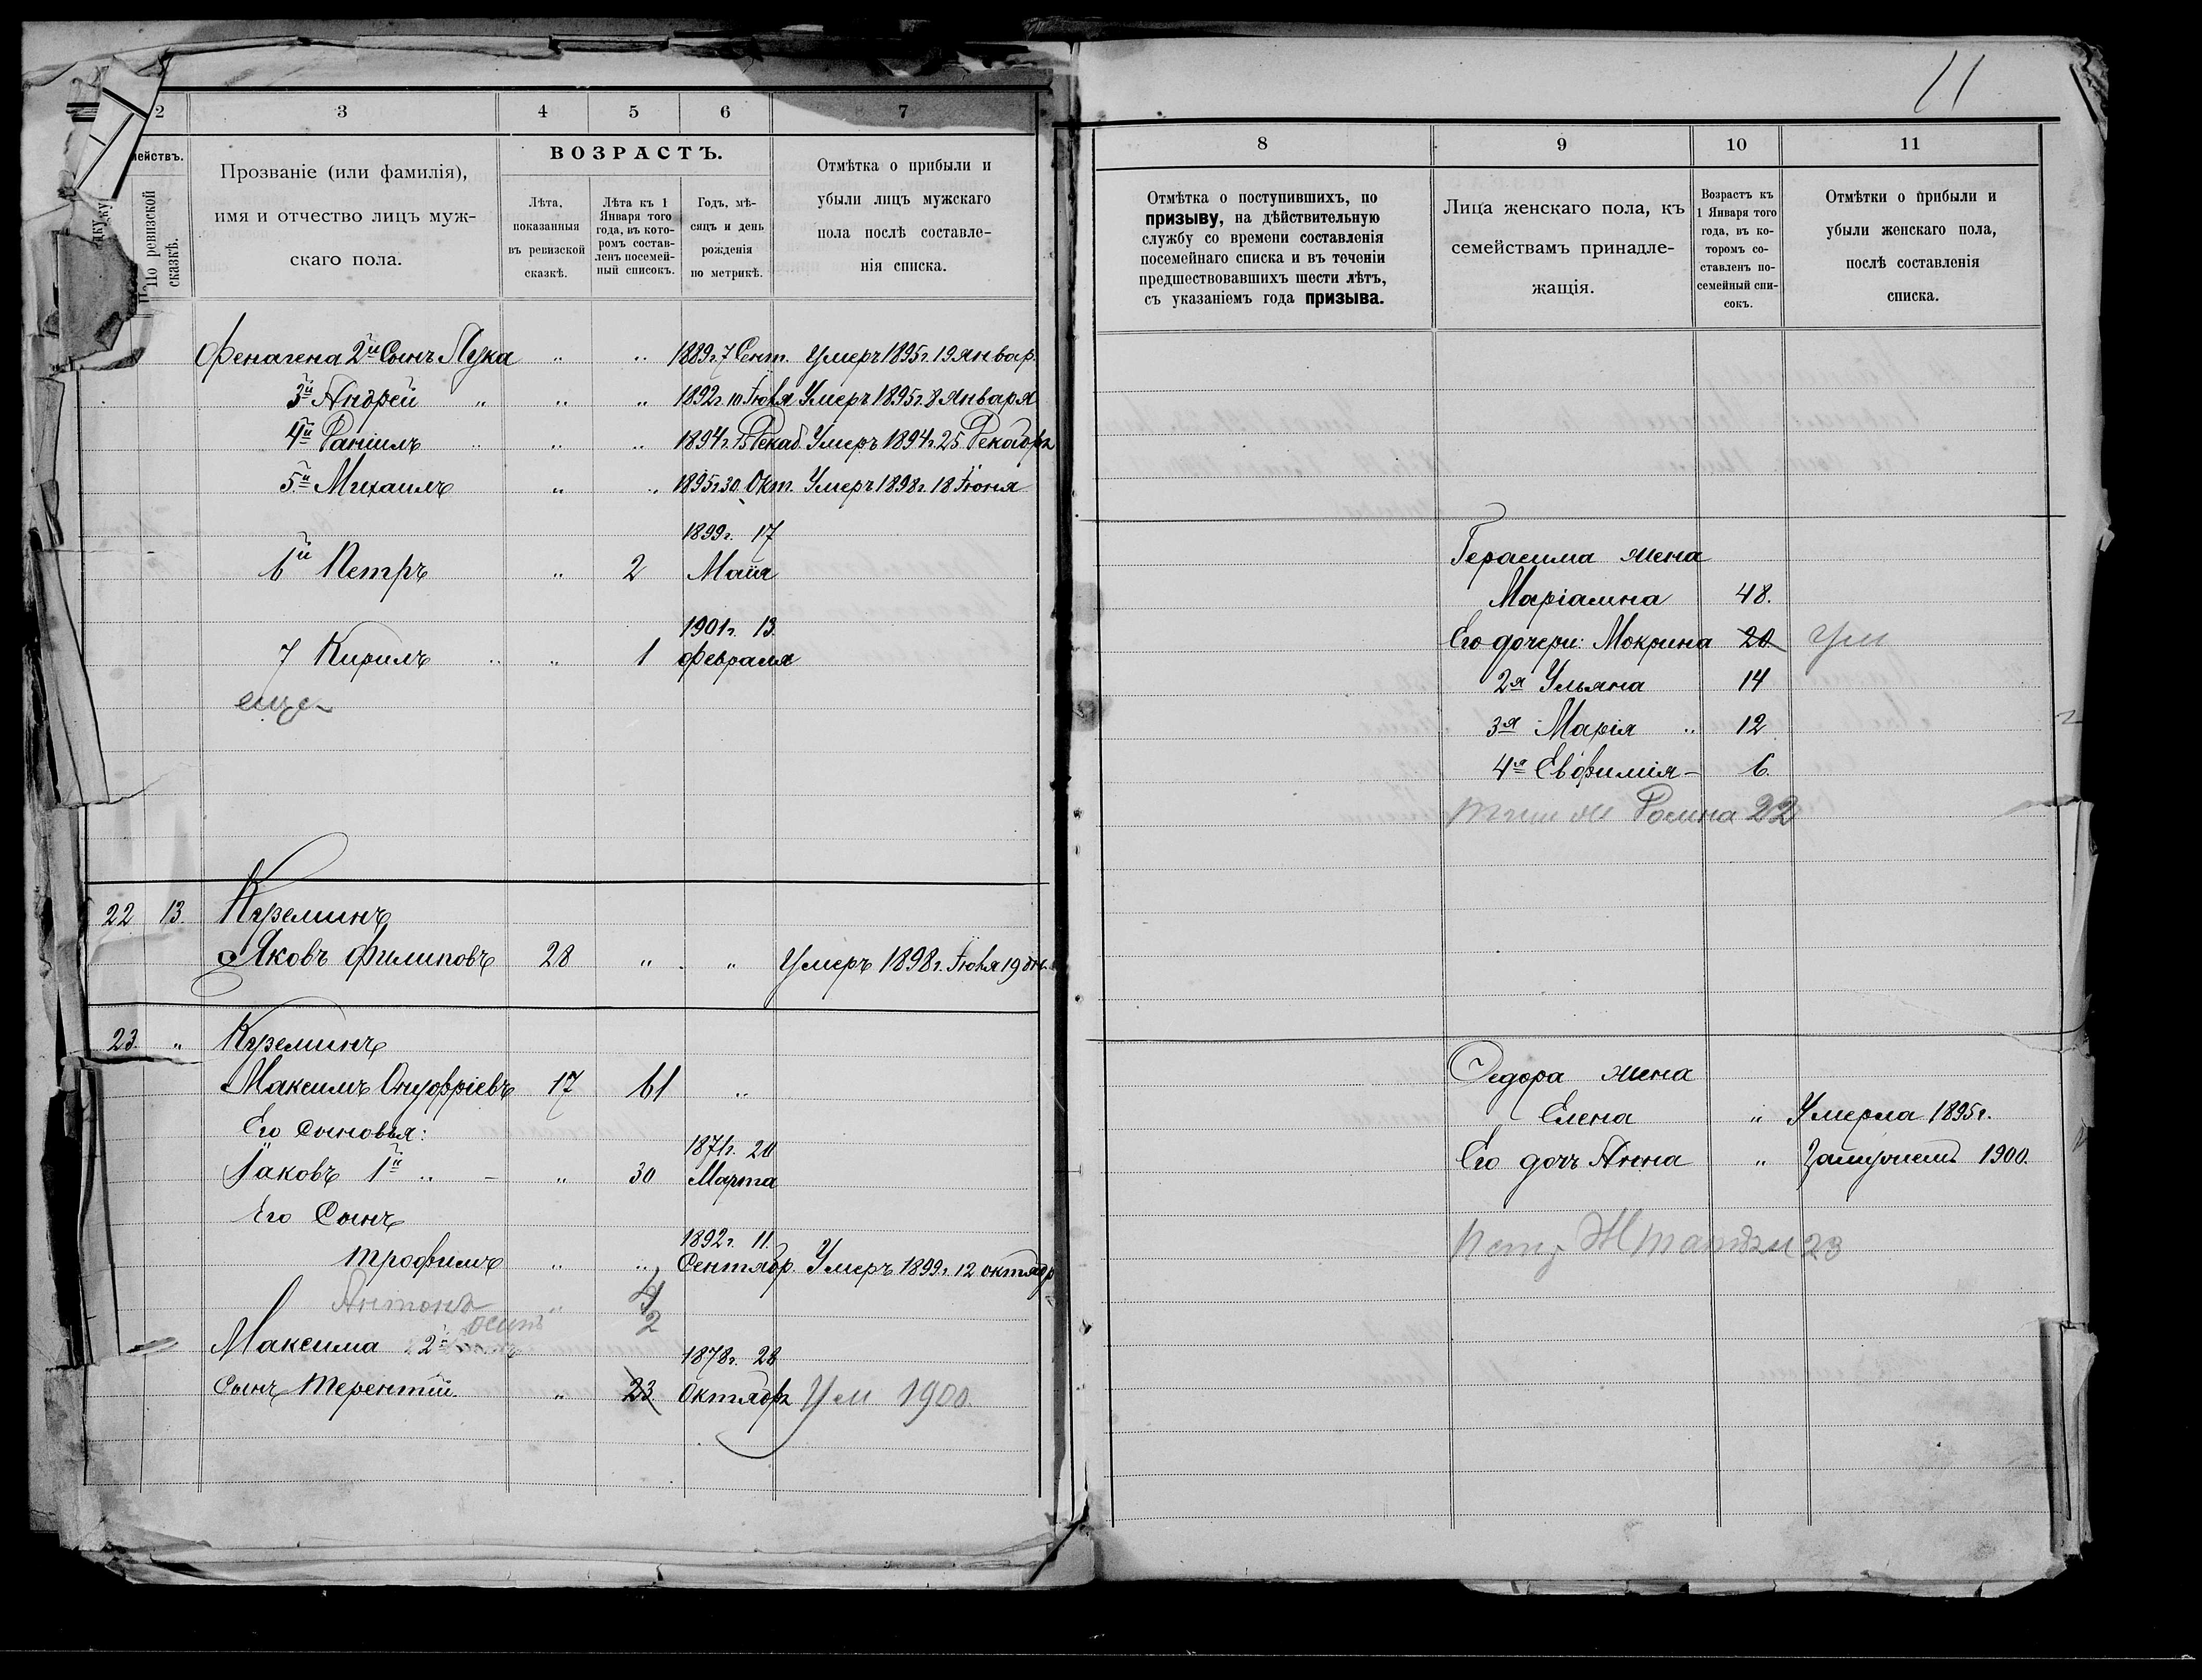 2 3 4 5 6 7
ействъ.
По ревизской сказкѣ.
Прозваніе (или фамилія),
имя и отчество лицъ муж-
скаго пола.
ВОЗРАСТЪ.
Лѣта,
показанныя
въ ревизской
сказкѣ.
Лѣта къ 1
Января того
года, въ кото-
ромъ состав-
ленъ посемей-
ный списокъ.
Годъ, мѣ-
сяцъ и день
рожденія
по метрикѣ.
Отмѣтка о прибыли и
убыли лицъ мужскаго
пола послѣ составле-
нія списка.
Фенагена 2й Сынъ Лука " " 1889г. 7 Сент. Умеръ 1895г. 19 Январ.
3й Андрей " " " 1892г. 10 Іюля Умеръ 1895г. 8 Января
4й Даніилъ " " " 1894г. 15 Декаб. Умеръ 1894г. 25 Декабря
5й Михаилъ " " 1895г. 30 Окт. Умеръ 1898г. 18 Іюня
1899г. 17
6й Петръ " 2 Мая
1901г. 13
7 Кирилъ " " 1 февраля
еще
22 13. Куреминъ
Яковъ Филиповъ 28 " " Умеръ 1898г. Іюля 19 дн.
23. " Куреминъ
Максимъ Онуфріевъ 17 61 "
Его Сыновья:
1871г. 20
Іаковъ 1й " " 30 Марта
Его Сынъ
1892г. 11.
Трофимъ " " Сентябр. Умеръ 1899г. 12 октябр
Антонъ " 4
осипъ 2
Максима 2й
1878г. 28
Сынъ Терентій " 23 Октября Ум 1900.
11
8 9 10 11
Отмѣтка о поступившихъ, по
призыву, на дѣйствительную
службу со времени составленія
посемейнаго списка и въ теченіи
предшествовавшихъ шести лѣтъ,
съ указаніемъ года призыва.
Лица женскаго пола, къ
семействамъ принадле-
жащія.
Возрастъ къ
1 Января того
года, въ ко-
торомъ со-
ставленъ по-
семейный спи-
сокъ.
Отмѣтки о прибыли и
убыли женскаго пола,
послѣ составленія
списка.
Герасима жена
Маріамна 48.
Его дочери: Мокрина 20 Ум
2я Ульяна 14
3я Марія " 12
4я Евфимія 6.
Домна 22
Федора жена
Елена " Умерла 1895г.
Его дочь Анна " Замужемъ 1900.
23